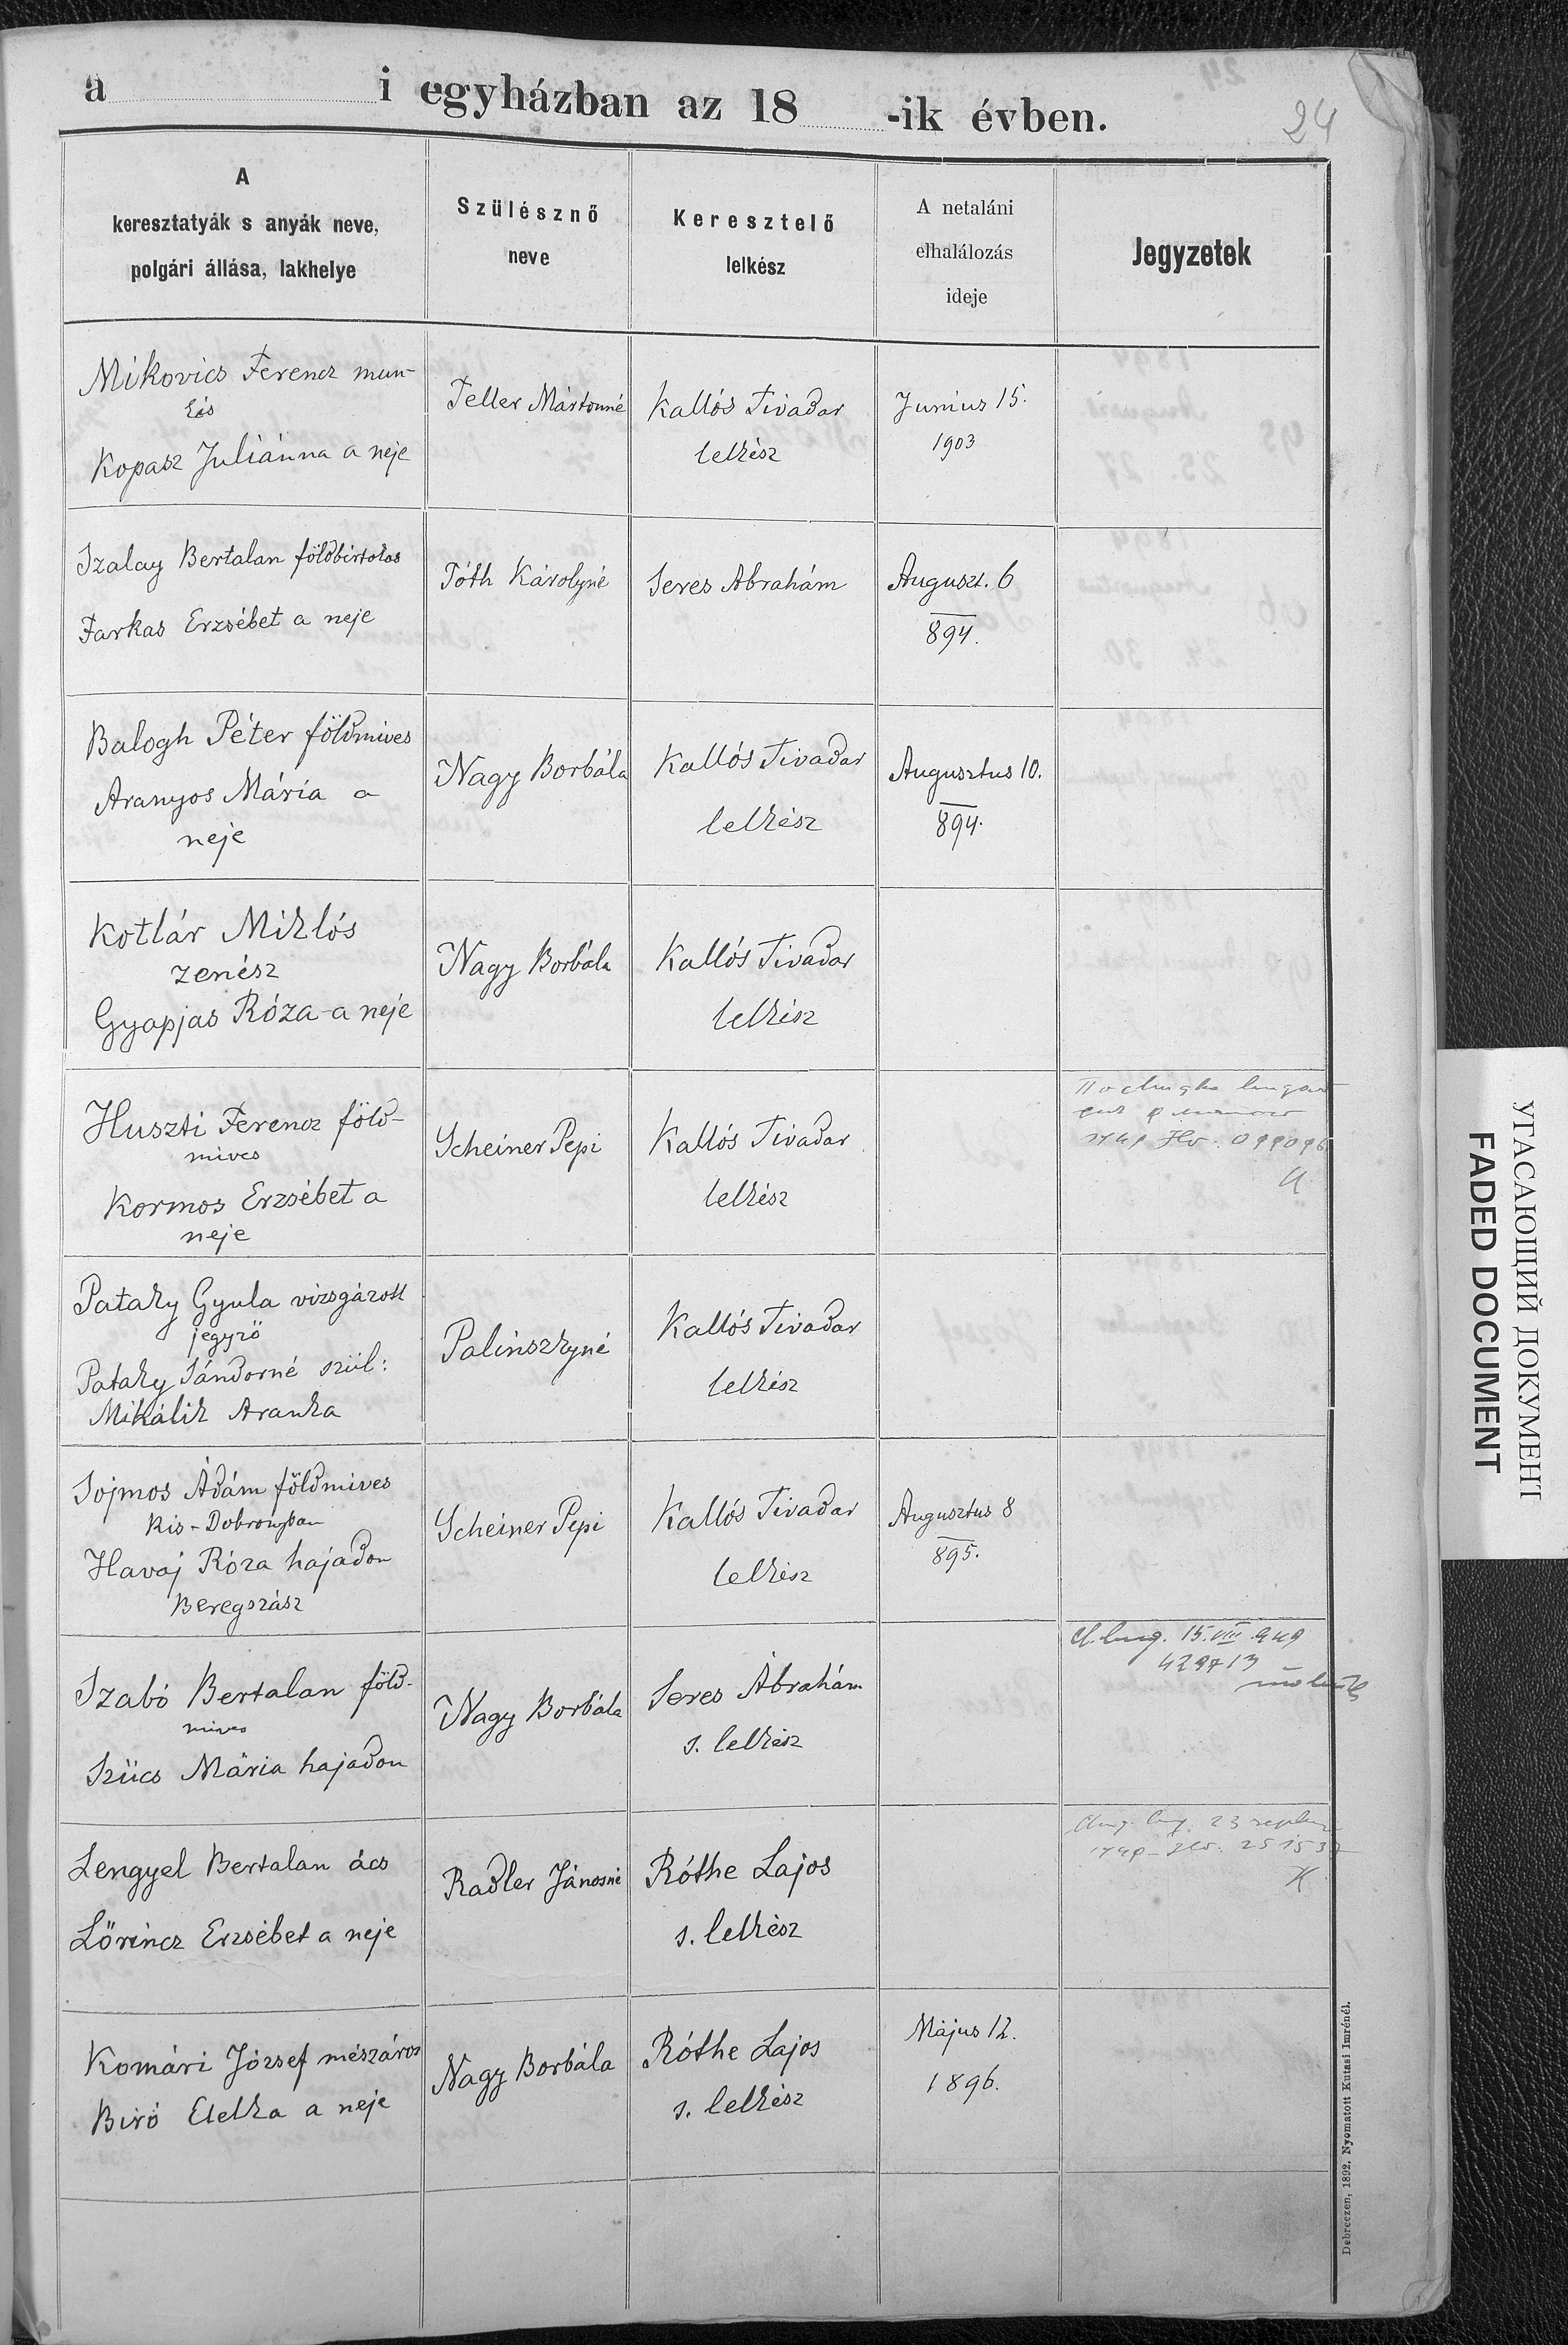 a i egyházban az 18 -ik évben.
24
A
keresztatyák s anyák neve,
polgári állása, lakhelye
Szülésznő
neve
Keresztelő
lelkész
A netaláni
elhalálozás
ideje
Jegyzetek
Mikovics Ferencz mun-
kás
Kopasz Juliánna a neje
Teller Mártonné
Kallós Tivadar
lelkész
Junius 15.
1903
Szalay Bertalan földbirtokos
Farkas Erzsébet a neje
Tóth Károlyné
Seres Abrahám
Auguszt. 6
894.
Balogh Péter földmives
Aranyos Mária a
neje
Nagy Borbála
Kallós Tivadar
lelkész
Augusztus 10.
894.
Kotlár Miklós
zenész
Gyapjas Róza a neje
Nagy Borbála
Kallós Tivadar
lelkész
Huszti Ferencz föld-
mives
Kormos Erzsébet a
neje
Scheiner Pepi
Kallós Tivadar
lelkész
Pataky Gyula vizsgázott
jegyző
Pataky Sándorné szül:
Mikálik Aranka
Palinszkyné
Kallós Tivadar
lelkész
Sojmos Ádám földmives
Kis-Dobronyban
Havaj Róza hajadon
Beregszász
Scheiner Pepi
Kallós Tivadar
lelkész
Augusztus 8
895.
Szabó Bertalan föld-
mives
Szücs Mária hajadon
Nagy Borbála
Seres Ábrahám
s. lelkész
15. VIII
Lengyel Bertalan ács
Lőrincz Erzsébet a neje
Radler Jánosné
Róthe Lajos
s. lelkész
23
Komári József mészáros
Biró Etelka a neje
Nagy Borbála
Róthe Lajos
s. lelkész
Május 12.
1896.
Debreczen, 1892. Nyomatott Kutasi Imrénél.
УГАСАЮЩИЙ ДОКУМЕНТ
FADED DOCUMENT